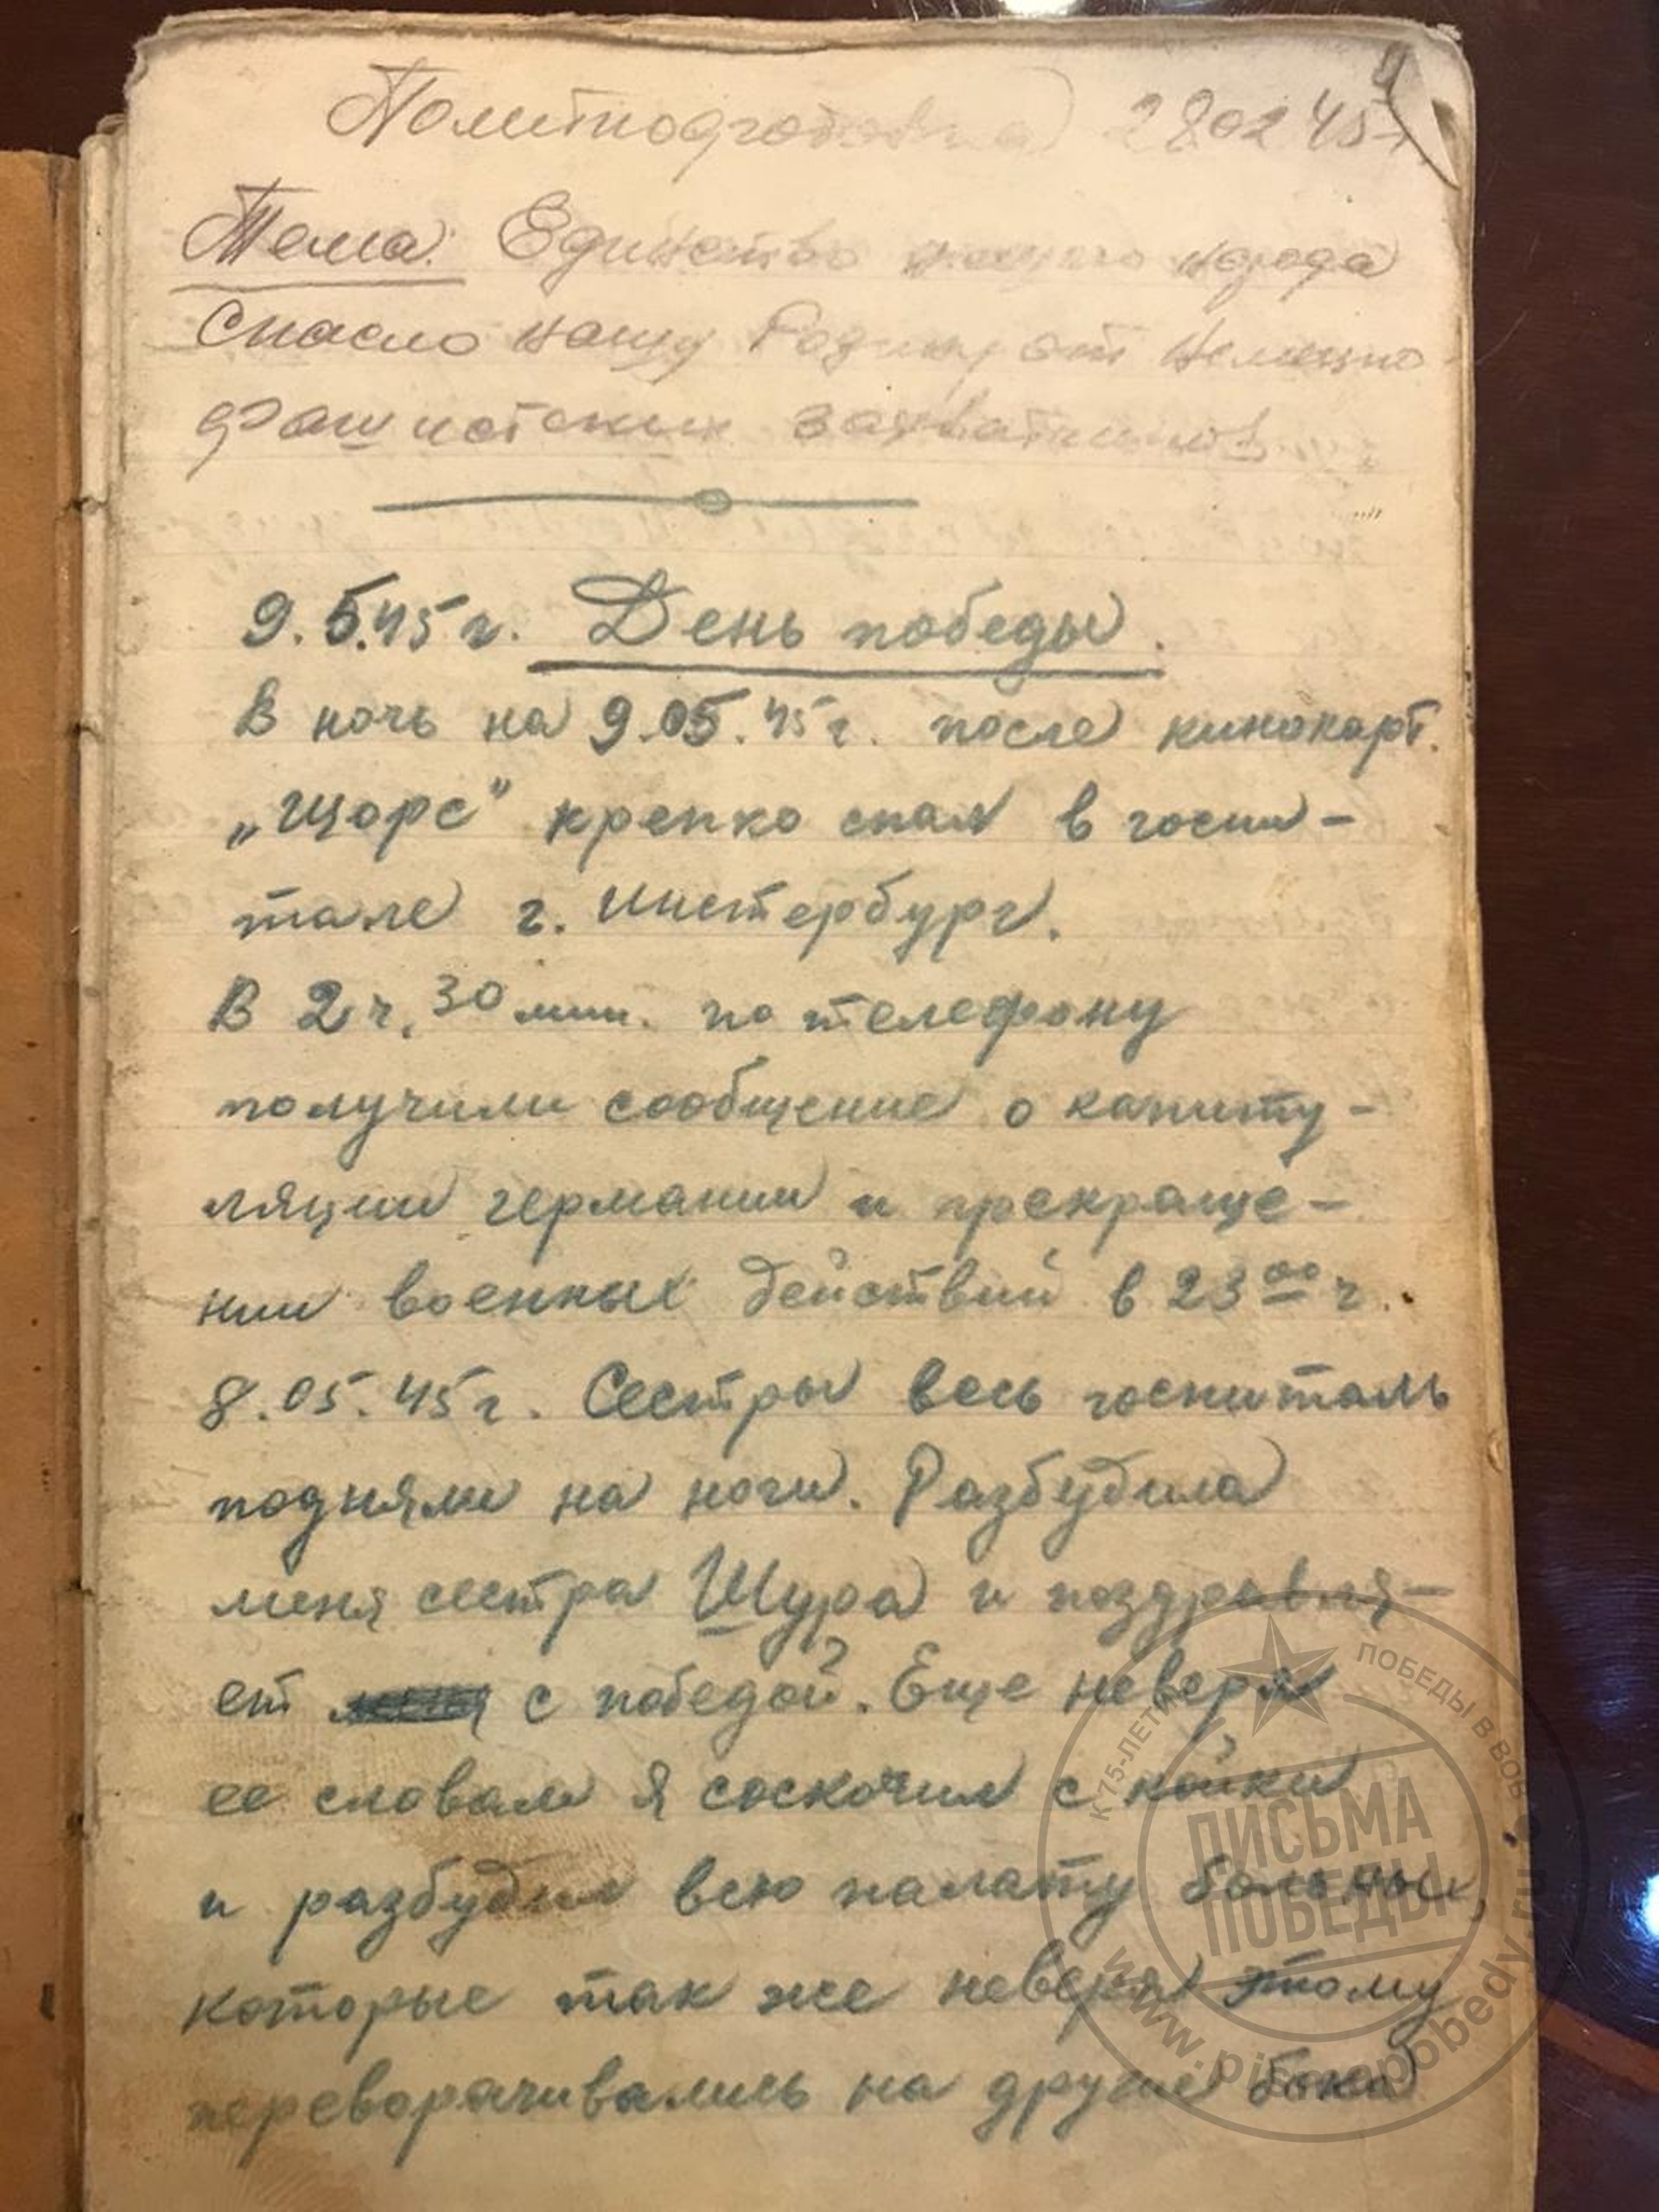 Политподготовка 28 02 45 г.
Тема: Единство нашего народа
спасло нашу Родину от немецко-
фашистских захватчиков
9.5.45 г. День победы.
В ночь на 9.05.45 г. после кинокарт.
„Щорс" крепко спал в госпи-
тале г. Инстербург.
В 2 ч. 30 мин. по телефону
получили сообщение о капиту-
ляции германии и прекраще-
нии военных действий в 23 00 ч.
8.05.45 г. Сестры весь госпиталь
подняли на ноги. Разбудила
меня сестра Шура и поздравля-
ет с победой. Еще неверя
ее словам я соскочил с койки
и разбудил всю палату больных,
которые так же неверя этому
переворачивались на другие бока
К 75-ЛЕТИЮ ПОБЕДЫ В ВОВ
ПИСЬМА
ПОБЕДЫ
www.pismapobedy.ru